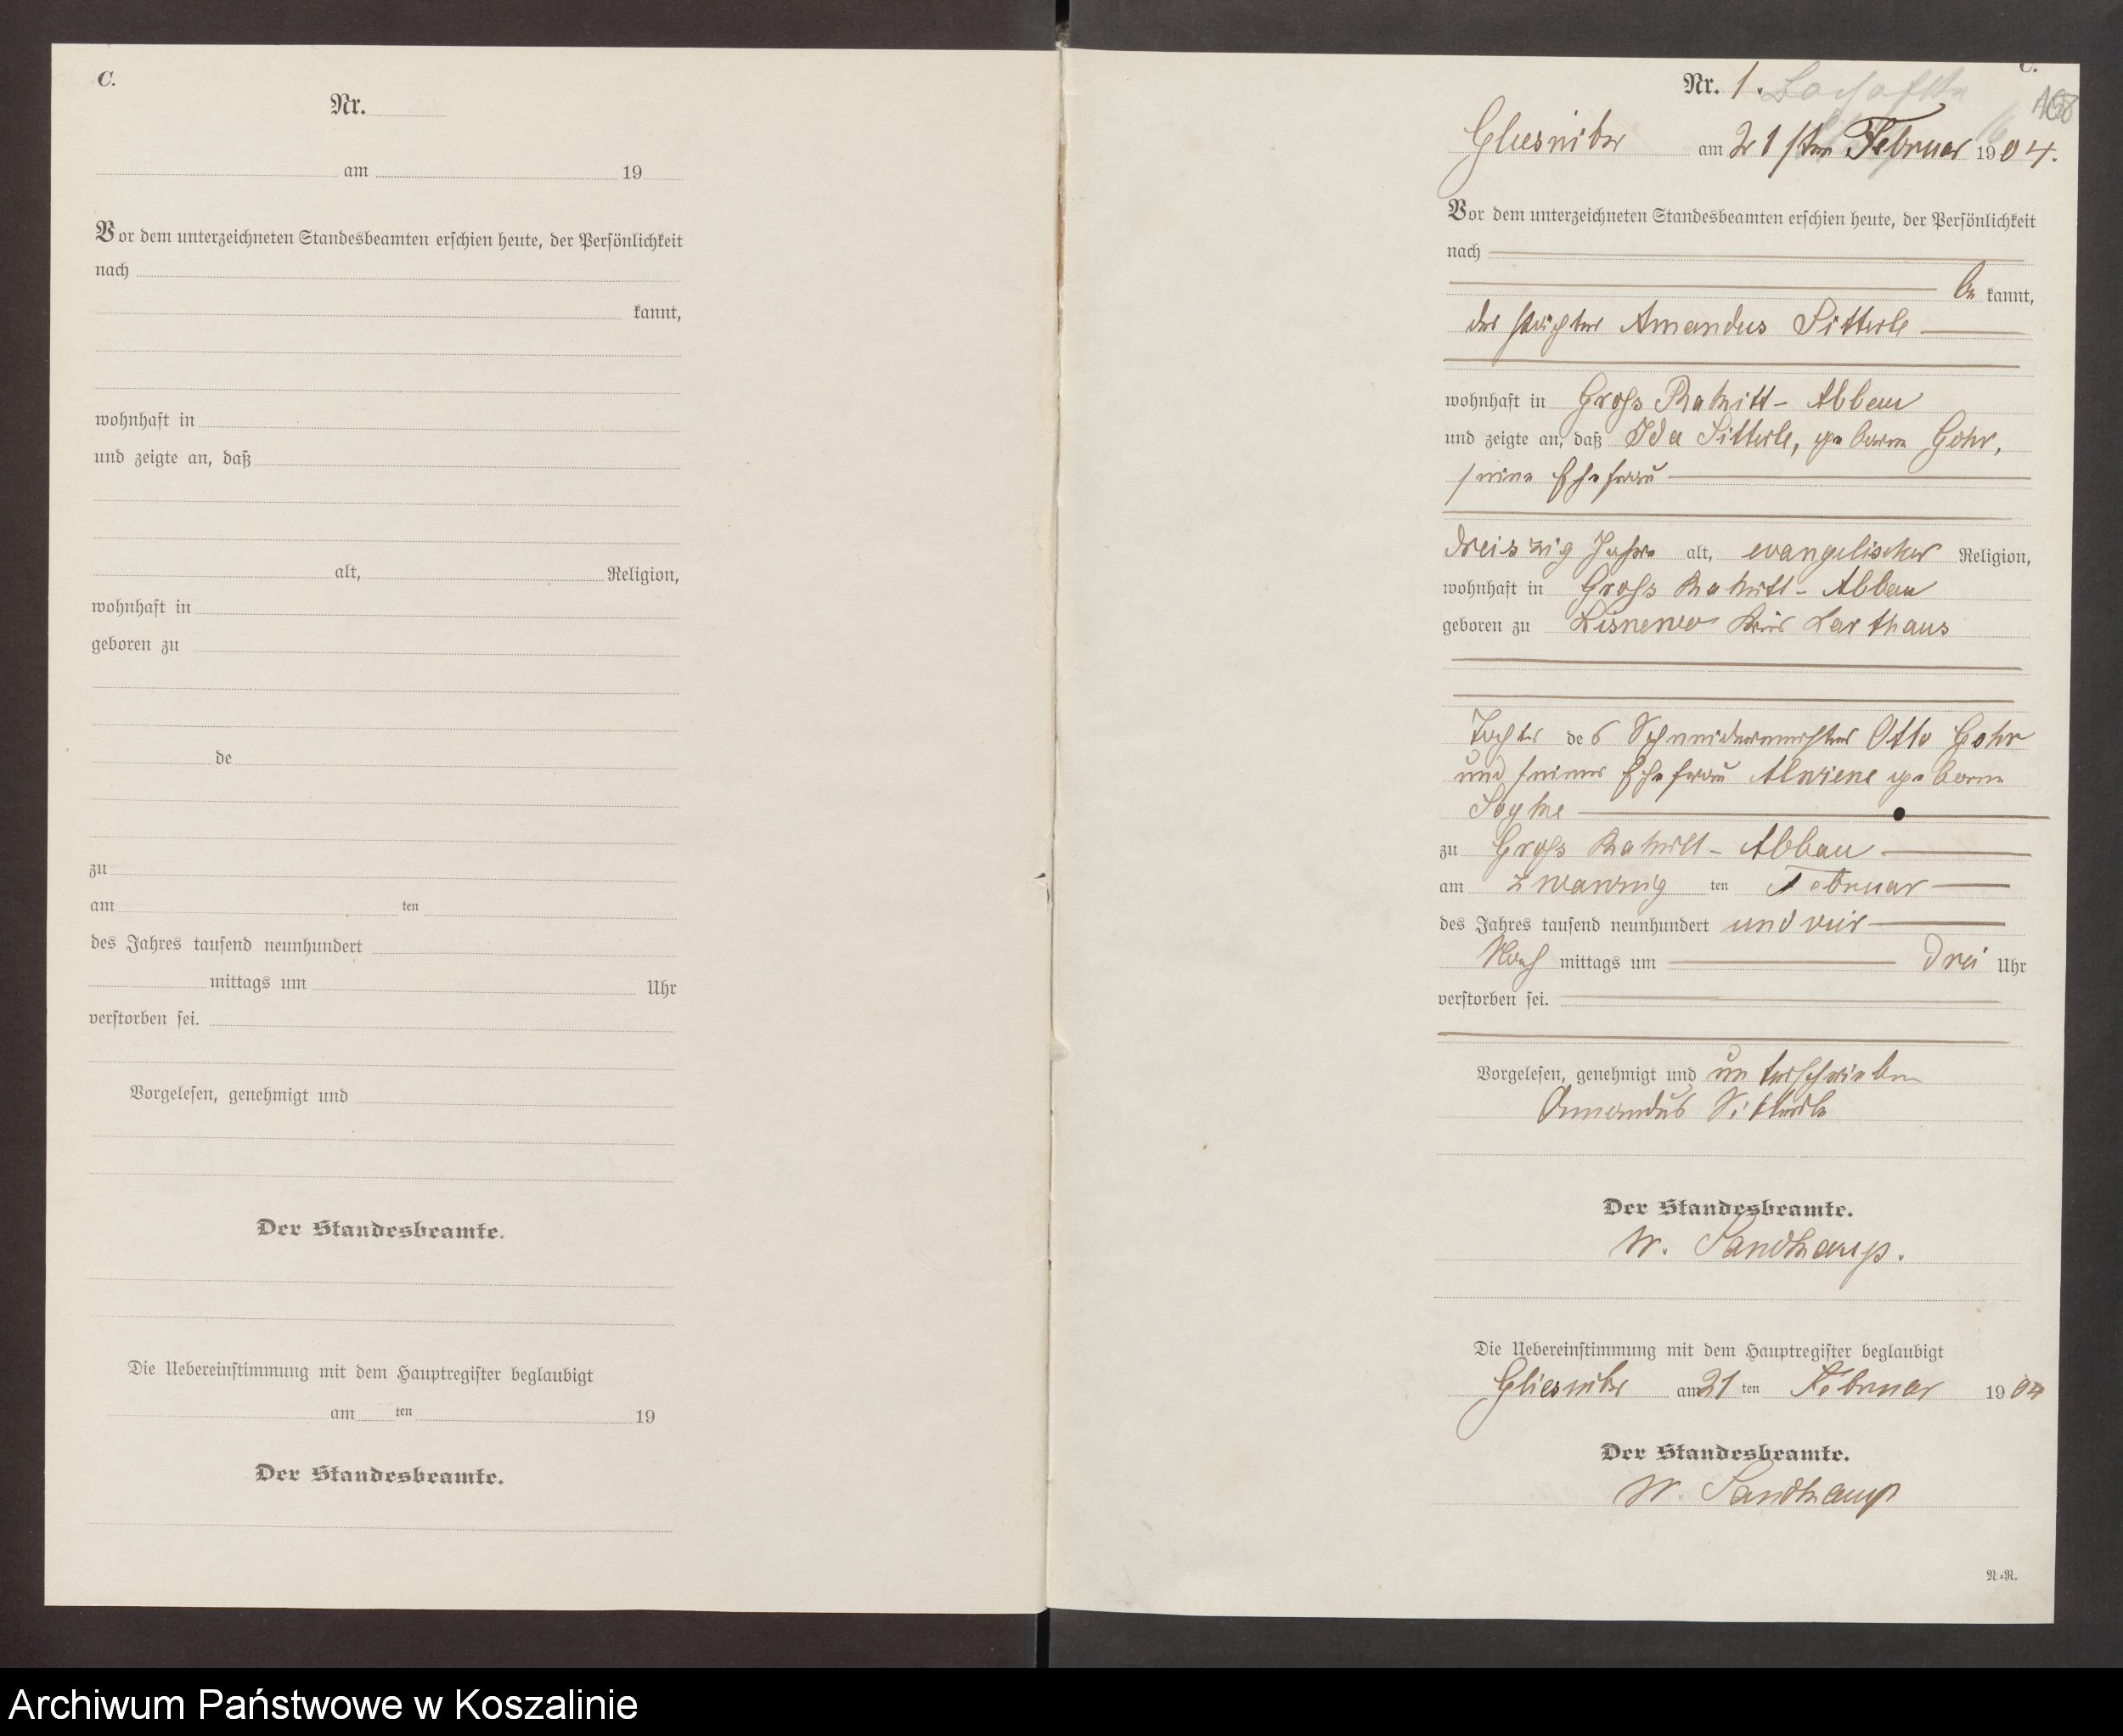 C.
Nr.
am 19
Vor dem unterzeichneten Standesbeamten erschien heute, der Persönlichkeit
nach
kannt,
wohnhaft in
und zeigte an, daß
alt, Religion,
wohnhaft in
geboren zu
de
zu
am ten
des Jahres tausend neunhundert
mittags um Uhr
verstorben sei.
Vorgelesen, genehmigt und
Der Standesbeamte.
Die Uebereinstimmung mit dem Hauptregister beglaubigt
am ten 19
Der Standesbeamte.
C.
Nr. 1.
168
Gliesnitz am 21sten Februar 1904.
Vor dem unterzeichneten Standesbeamten erschien heute, der Persönlichkeit
nach
be kannt,
der Pächter Amandus Sitterle
wohnhaft in Gross Rakitt - Abbau
und zeigte an, daß Ida Sitterle, geborene Gohr,
seine Ehefrau
dreiszig Jahre alt, evangelischer Religion,
wohnhaft in Gross Rakitt - Abbau
geboren zu Lisnewo Kreis Karthaus
Tochter des Schneidermeister Otto Gohr
und seiner Ehefrau Alwiene geborene
zu Gross Rakitt - Abbau
am zwanzig ten Februar
des Jahres tausend neunhundert und vier
Nach mittags um drei Uhr
verstorben sei.
Vorgelesen, genehmigt und unterschrieben
Amandus Sitterle
Der Standesbeamte.
W. Sandkamp.
Die Uebereinstimmung mit dem Hauptregister beglaubigt
Gliesnitz am 21 ten Februar 1904
Der Standesbeamte.
W. Sandkamp
N.=R.
Archiwum Państwowe w Koszalinie